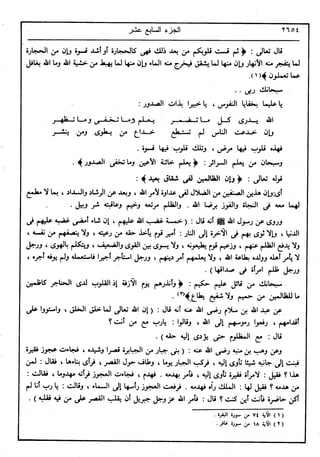 ٢٦٥٤
الجزء السابع عشر
قال تعالى : ﴿ ثم قست قلوبكم من بعد ذلك فهى كالحجارة أو أشد قسوة وإن من الحجارة
لما يتفجر منه الأنهار وإن منها لما يشقق فيخرج منه الماء وإن منها لما يهبط من خشية الله وما الله بغافل
عما تعملون ﴾(١).
سبحانك ربى . .
يا عليما بخفايا النفوس ، يا خبيرا بذات الصدور :
الله يدرى كل ما تضمر يعلم ما تخفى وما تظهر
وإن خدعت الناس لم تستطع خداع من يطوى ومن ينشر
فهذه قلوب فيها مرض ، وتلك قلوب فيها قسوة .
وسبحان من يعلم السرائر : ﴿ يعلم خائنة الأعين وما تخفى الصدور ﴾.
قوله تعالى : ﴿ وإن الظالمين لفى شقاق بعيد ﴾ :
أى وإن هذين الصنفين من الضلال لفى عداوة لأمر الله ، وبعد عن الرشاد والسداد ، بما لا مطمع
لهما معه فى النجاة والفوز برضا الله . والظلم مرتعه وخيم وعاقبته شر وبيل .
وروى عن رسول الله ﷺ أنه قال : ( خمسة غضب الله عليهم ، إن شاء أمضى غضبه عليهم فى
الدنيا ، وإلا ثوى بهم فى الآخرة إلى النار : أمير قوم يأخذ حقه من رعيته ، ولا ينصفهم من نفسه ،
ولا يدفع الظلم عنهم ، وزعيم قوم يطيعونه ، ولا يسوى بين القوى والضعيف ، ويتكلم بالهوى ، ورجل
لا يأمر أهله وولده بطاعة الله ، ولا يعلمهم أمر دينهم ، ورجل استأجر أجيرا فاستعمله ولم يوفه أجره ،
ورجل ظلم امرأة فى صداقها ) .
سبحانك من قائل عليم حكيم : ﴿ وأنذرهم يوم الآزفة إذ القلوب لدى الحناجر كاظمين
ما للظالمين من حميم ولا شفيع يطاع ﴾(٢).
عن عبد الله بن سلام رضى الله عنه أنه قال : ( إن الله تعالى لما خلق الخلق ، واستووا على
أقدامهم ، رفعوا رءوسهم إلى الله ، وقالوا : يارب مع من أنت ؟
قال : مع المظلوم حتى يؤدى إليه حقه ) .
وعن وهب بن منبه رضى الله عنه : ( بنى جبار من الجبابرة قصرا وشيده ، فجاءت عجوز فقيرة
فبنت إلى جانبه شيئا تأوى إليه ، فركب الجبار يوما ، وطاف حول القصر ، فرأى بناءها ، فقال : لمن
هذا ؟ فقيل : لامرأة فقيرة تأوى إليه ، فأمر بهدمه . فهدم ، فجاءت العجوز فرأته مهدوما ، فقالت :
من هدمه ؟ فقيل لها : الملك رآه فهدمه . فرفعت العجوز رأسها إلى السماء ، وقالت : يا رب أنا لم
أكن حاضرة فأنت أين كنت ؟ قال : فأمر الله عز وجل جبريل أن يقلب القصر على من فيه فقلبه ) .
(١) الآية ٧٤ من سورة البقرة .
(٢) الآية ١٨ من سورة غافر .